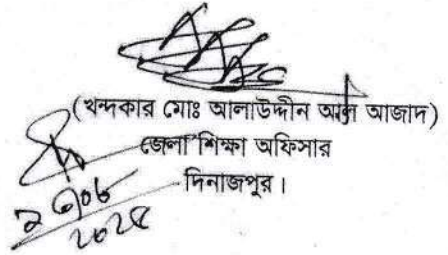 (খন্দকার মোঃ আলাউদ্দীন আল আজাদ)
জেলা শিক্ষা অফিসার
দিনাজপুর।